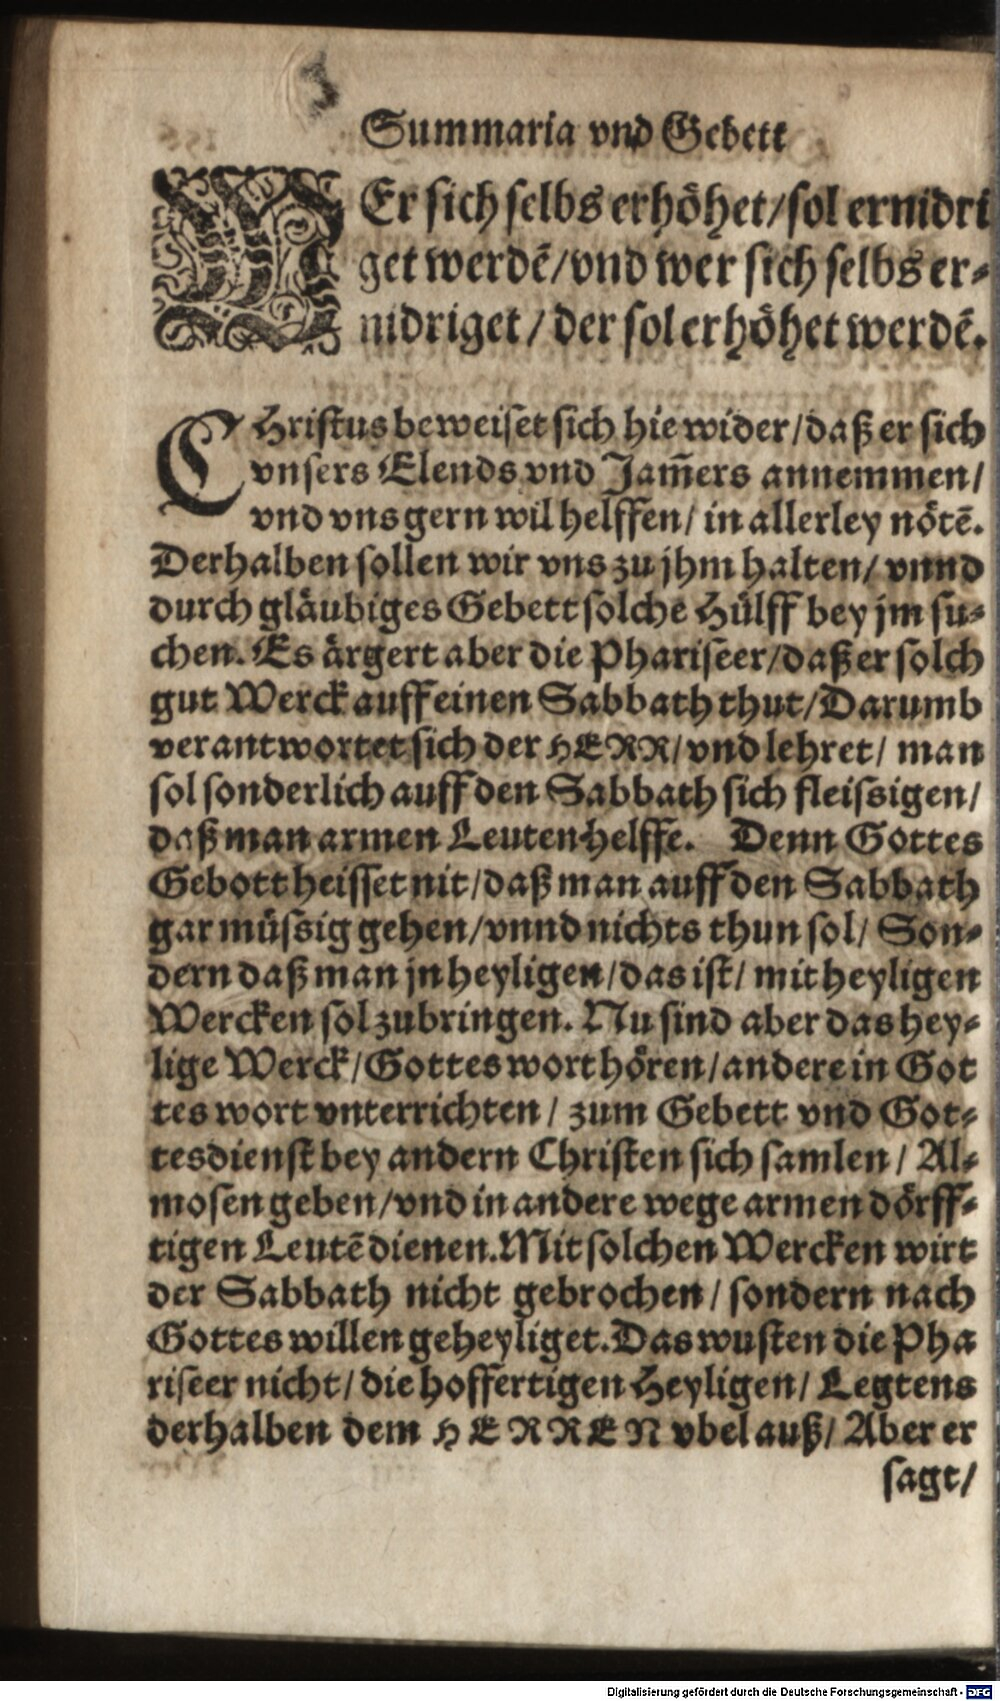 Summaria vnd Gebett
WEr sich selbs erhöhet/sol ernidri
get werdẽ/vnd wer sich selbs er-
nidriget/der sol erhöhet werdẽ.
CHristus beweiset sich hie wider/daß er sich
vnsers Elends vnd Jam̃ers annemmen/
vnd vns gern wil helffen/in allerley nötẽ.
Derhalben sollen wir vns zu jhm halten/vnnd
durch gläubiges Gebett solche Hülff bey jm su-
chen. Es ärgert aber die Phariseer/daß er solch
gut Werck auff einen Sabbath thut/Darumb
verantwortet sich der HERR/vnd lehret/ man
sol sonderlich auff den Sabbath sich fleissigen/
daß man armen Leuten helffe. Denn Gottes
Gebott heisset nit/daß man auff den Sabbath
gar müssig gehen/vnnd nichts thun sol/ Son-
dern daß man jn heyligen/das ist/ mit heyligen
Wercken sol zubringen. Nu sind aber das hey-
lige Werck/Gottes wort hören/andere in Got
tes wort vnterrichten/ zum Gebett vnd Got-
tesdienst bey andern Christen sich samlen/ Al-
mosen geben/vnd in andere wege armen dörff-
tigen Leutẽ dienen. Mit solchen Wercken wirt
der Sabbath nicht gebrochen/sondern nach
Gottes willen geheyliget. Das wusten die Pha
riseer nicht/die hoffertigen Heyligen/ Legtens
derhalben dem HERREN vbel auß/ Aber er
sagt/
Digitalisierung gefördert durch die Deutsche Forschungsgemeinschaft - DFG